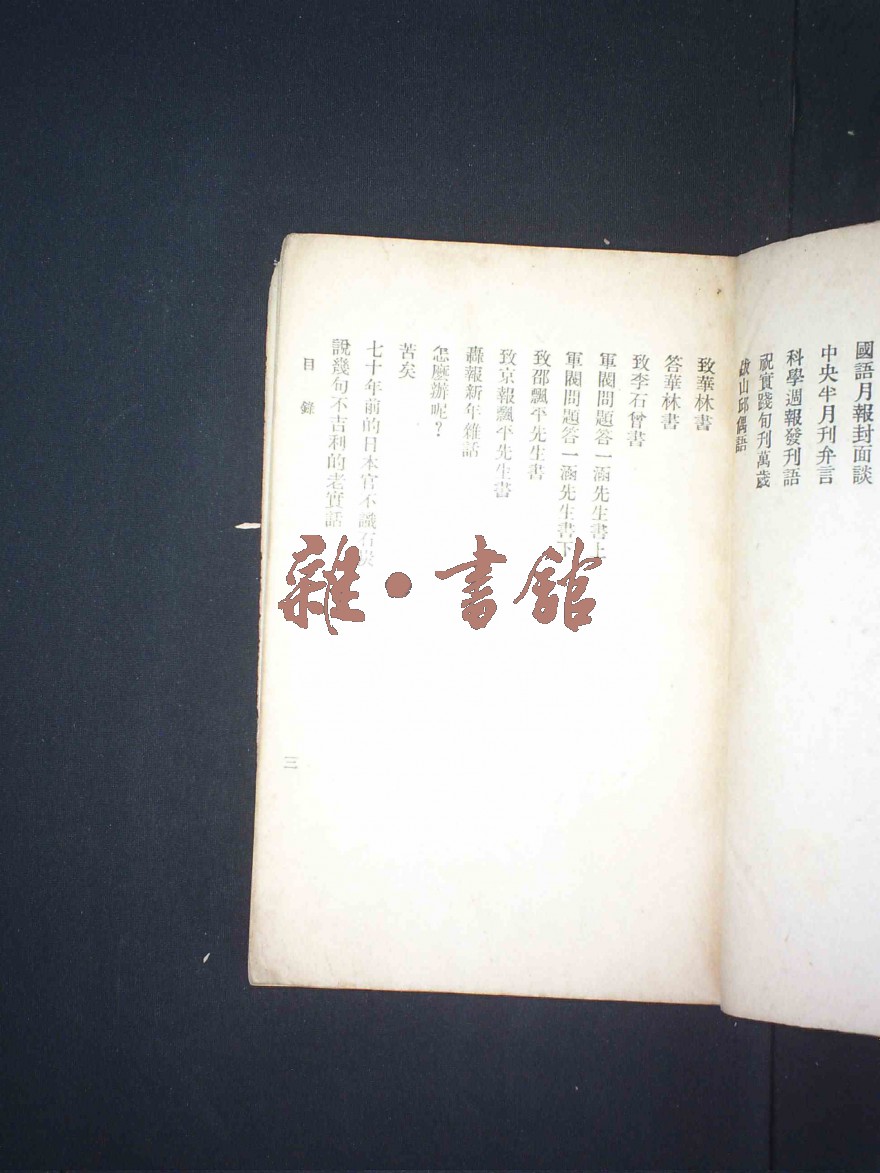 國語月報封面談
中央半月刊弁言
科學週報發刊語
祝實踐旬刊萬歲
山邱偶語
致華林書
答華林書
致李石曾書
軍閥問題答一涵先生書上
軍閥問題答一涵先生書下
致邵飄平先生書
致京報飄平先生書
轟報新年雜話
怎麼辦呢?
苦矣
七十年前的日本官不識石炭
說幾句不吉利的老實話
目錄
三
雜·書館